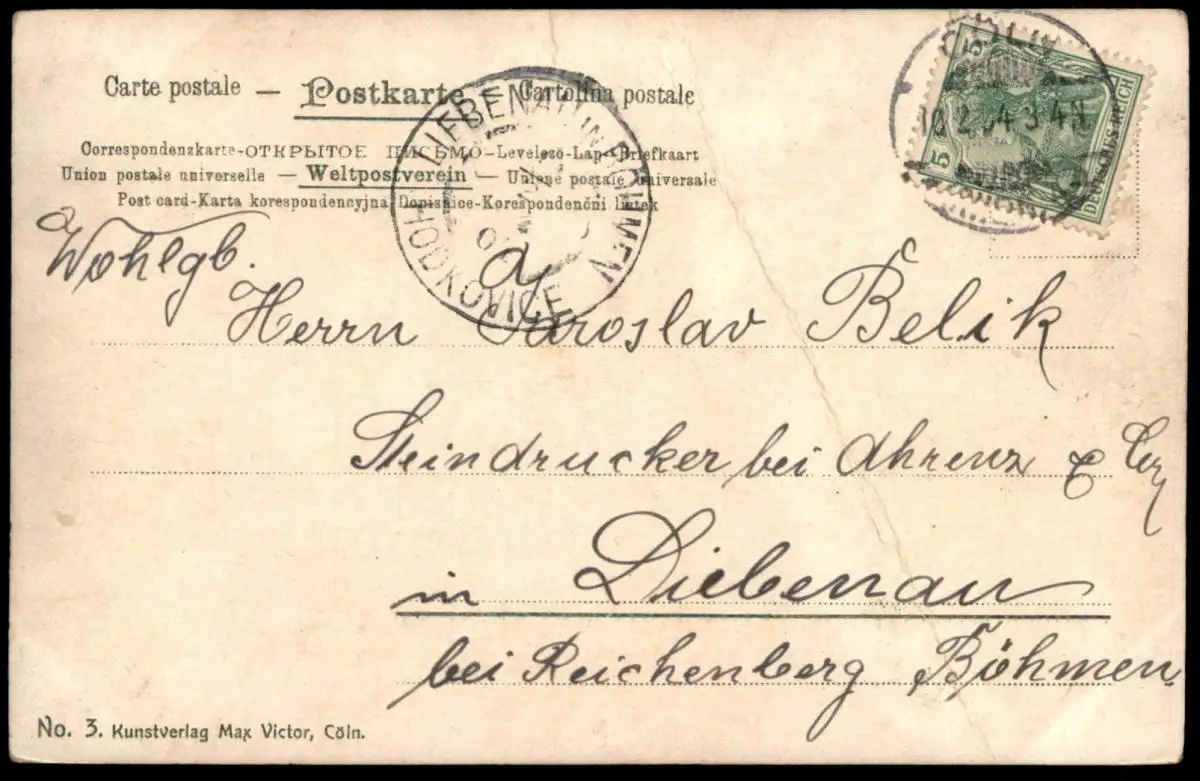 Carte postale — Postkarte — Cartolina postale
Correspondenzkarte-ОТКРЫТОЕ ПИСЬМО-Levelezö-Lap-Briefkaart
Union postale universelle — Weltpostverein — Unione postale universale
Post card-Karta korespondencyjna-Dopisnice-Korespondenčni listek
LIEBENAU IN BÖHMEN
HODKOVICE
CÖLN
10.2.04. 3-4N
5
5
DEUTSCHES REICH
Wohlgb.
Herrn Jaroslav Belik
Steindrucker bei Ahrenz &
in Liebenau
bei Reichenberg Böhmen
No. 3. Kunstverlag Max Victor, Cöln.